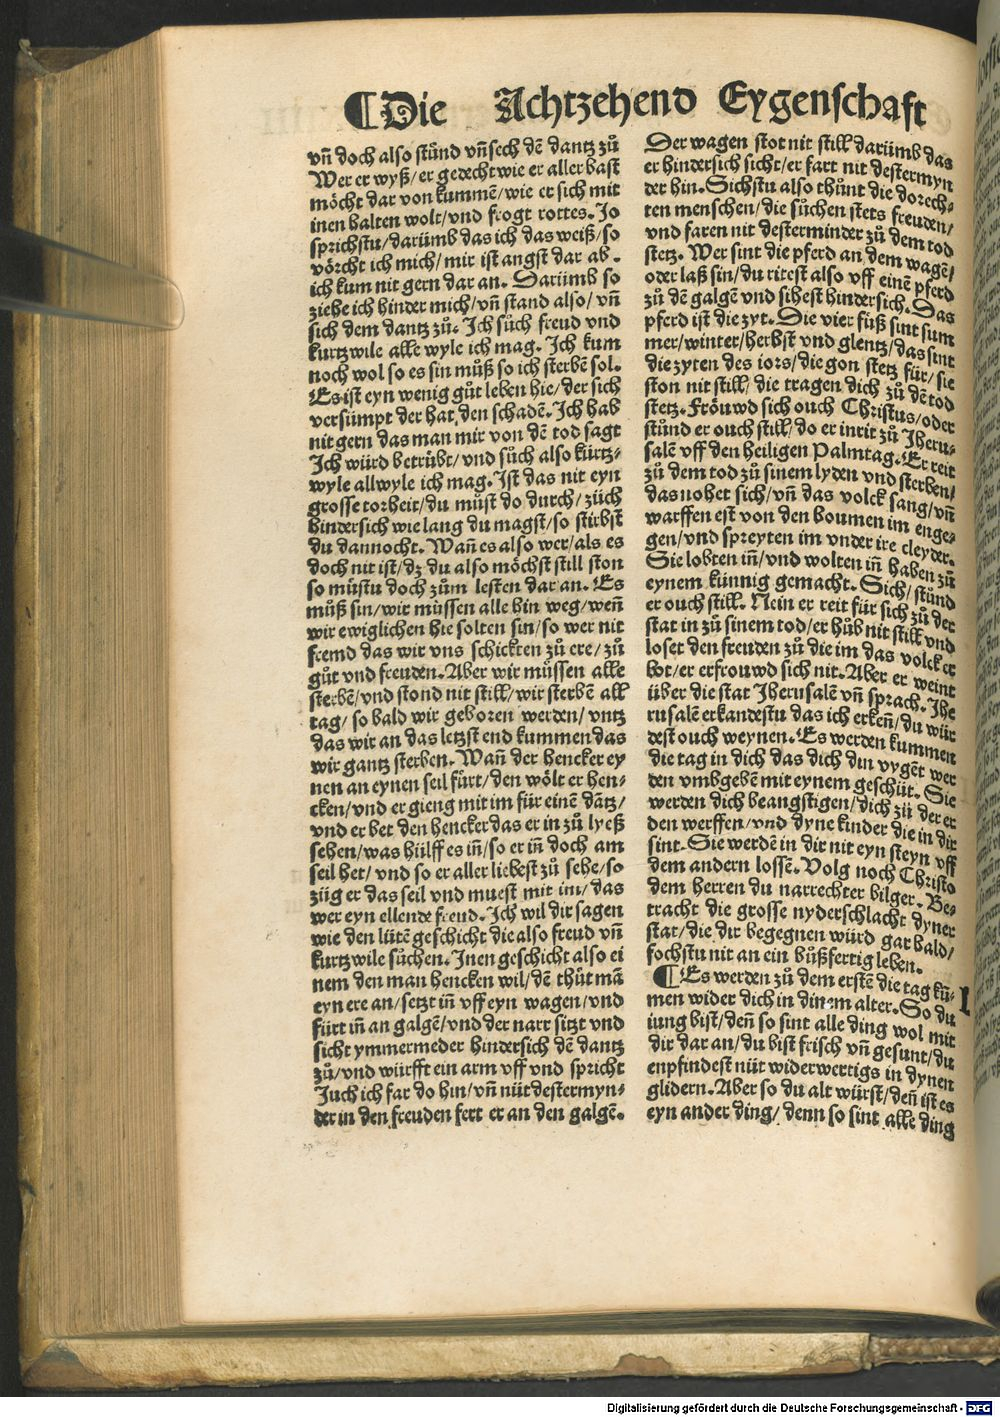 ¶Die Achtzehend Eygenschaft
vñ doch also stünd vñ sech dẽ dantz zů
Wer er wyß/er gedecht wie er aller bast
möcht dar von kummẽ/wie er sich mit
inen halten wolt/vnd frogt rottes. Jo
sprichstu/darümb das ich das weiß/so
vörcht ich mich/mir ist angst dar ab.
ich kum nit gern dar an. Darümb so
ziehe ich hinder mich/vñ stand also/vñ
sich dem dantz zů. Ich sůch freud vnd
kurtzwile alle wyle ich mag. Ich kum
noch wol so es sin můß so ich sterbẽ sol.
Es ist eyn wenig gůt leben hie/der sich
versümpt der hat den schadẽ. Ich hab
nit gern das man mir von dẽ tod sagt
Ich würd betrübt/vnd sůch also kürtz-
wyle allwyle ich mag. Ist das nit eyn
grosse torheit/du můst do durch/züch
hindersich wie lang du magst/so stirbst
du dannocht. Wañ es also wer/als es
doch nit ist/dz du also möchst still ston
so müstu doch zům lesten dar an. Es
můß sin/wir müssen alle hin weg/weñ
wir ewiglichen hie solten sin/so wer nit
fremd das wir vns schickten zů ere/zů
gůt vnd freuden. Aber wir müssen alle
sterbẽ/vnd stond nit still/wir sterbẽ all
tag/so bald wir geboren werden/vntz
das wir an das letzst end kummen das
wir gantz sterben. Wañ der hencker ey
nen an eynen seil fürt/den wölt er hen-
cken/vnd er gieng mit im für einẽ dãtz/
vnd er bet den hencker das er in zů lyeß
sehen/was hülff es iñ/so er iñ doch am
seil het/vnd so er aller liebest zů sehe/so
züg er das seil vnd muest mit im/das
wer eyn ellende freud. Ich wil dir sagen
wie den lütẽ geschicht die also freud vñ
kurtzwile sůchen. Inen geschicht also ei
nem den man hencken wil/dẽ thůt mã
eyn ere an/setzt iñ vff eyn wagen/vnd
fürt iñ an galgẽ/vnd der narr sitzt vnd
sicht ymmermeder hindersich dẽ dantz
zů/vnd würfft ein arm vff vnd spricht
Juch ich far do hin/vñ nüt destermyn-
der in den freuden fert er an den galgẽ.
Der wagen stot nit still darümb das
er hindersich sicht/er fart nit destermyn
der hin. Sichstu also thůnt die dorech-
ten menschen/die sůchen stets freuden/
vnd faren nit desterminder zů dem tod
stetz. Wer sint die pferd an dem wagẽ/
oder laß sin/du ritest also vff einẽ pferd
zů dẽ galgẽ vnd sihest hindersich. Das
pferd ist die zyt. Die vier füß sint sum
mer/winter/herbst vnd glentz/das sint
die zyten des iors/die gon stetz für/sie
ston nit still/die tragen dich zů dẽ tod
stetz. Fröuwd sich ouch Christus/oder
stünd er ouch still/do er inrit zů Jheru-
salẽ vff den heiligen Palmtag. Er reit
zů dem tod zů sinem lyden vnd sterben/
das nohet sich/vñ das volck sang/vñ
warffen est von den boumen im enge-
gen/vnd spreyten im vnder ire cleyder.
Sie lobten iñ/vnd wolten iñ haben zů
eynem künnig gemacht. Sich/stünd
er ouch still. Nein er reit für sich zů der
stat in zů sinem tod/er hůb nit still vnd
loset den freuden zů die im das volck er
bot/er erfrouwd sich nit. Aber er weint
über die stat Jherusalẽ vñ sprach. Jhe
rusalẽ erkandestu das ich erkeñ/du wür
dest ouch weynen. Es werden kummen
die tag in dich das dich din vygẽt wer
den vmbgebẽ mit eynem geschüt. Sie
werden dich beangstigen/dich zů der er
den werffen/vnd dyne kinder die in dir
sint. Sie werdẽ in dir nit eyn steyn vff
dem andern lossẽ. Volg noch Christo
dem herren du narrechter bilger. Be-
tracht die grosse nyderschlacht dyner
stat/die dir begegnen würd gar bald/
fochstu nit an ein bůßfertig leben.
¶Es werden zů dem erstẽ die tag kũ-
men wider dich in dinem alter. So du
iung bist/deñ so sint alle ding wol mit
dir dar an/du bist frisch vñ gesunt/du
enpfindest nüt widerwertigs in dynen
glidern. Aber so du alt würst/deñ ist es
eyn ander ding/denn so sint alle ding
I
Digitalisierung gefördert durch die Deutsche Forschungsgemeinschaft - DFG